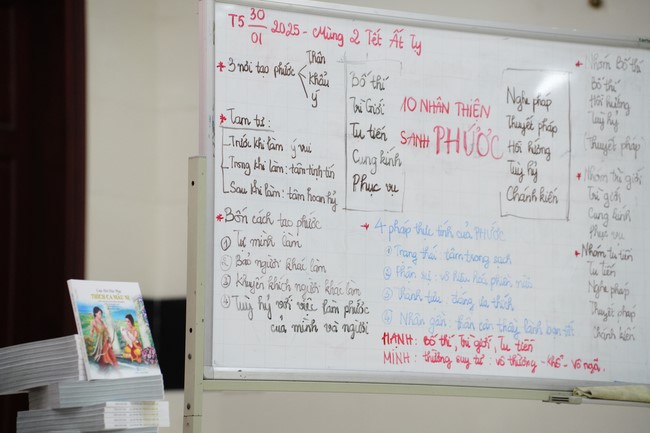 T5 30/01 2025 - Mùng 2 Tết Ất Tỵ
* 3 nơi tạo phước
Thân
khẩu
ý
* Tam tư:
Trước khi làm: ý vui
Trong khi làm: tâm tịnh tín
Sau khi làm: tâm hoan hỷ
* Bốn cách tạo phước
① Tự mình làm
② Bảo người khác làm
③ Khuyến khích người khác làm
④ Tuỳ hỷ với việc làm phước
của mình và người
Bố thí
Trì Giới
Tu tiến
Cung kính
Phục vụ
10 NHÂN THIỆN
SANH PHƯỚC
Nghe pháp
Thuyết pháp
Hồi hướng
Tuỳ hỷ
Chánh kiến
* 4 pháp thực tính của PHƯỚC
① Trạng thái: tâm trong sạch
② Phận sự: vô hiệu hoá phiền não
③ Thành tựu:
④ Nhân gần:
HẠNH: Bố thí, Trì giới, Tu tiến
MINH: thường suy tư: vô thường - khổ - vô ngã.
* Nhóm Bố thí
Bố thí
Hồi hướng
Tuỳ hỷ
Thuyết pháp
* Nhóm trì giới
Trì giới
Cung kính
Phục vụ
* Nhóm tu tiến
Tu tiến
Nghe pháp
Thuyết pháp
Chánh kiến